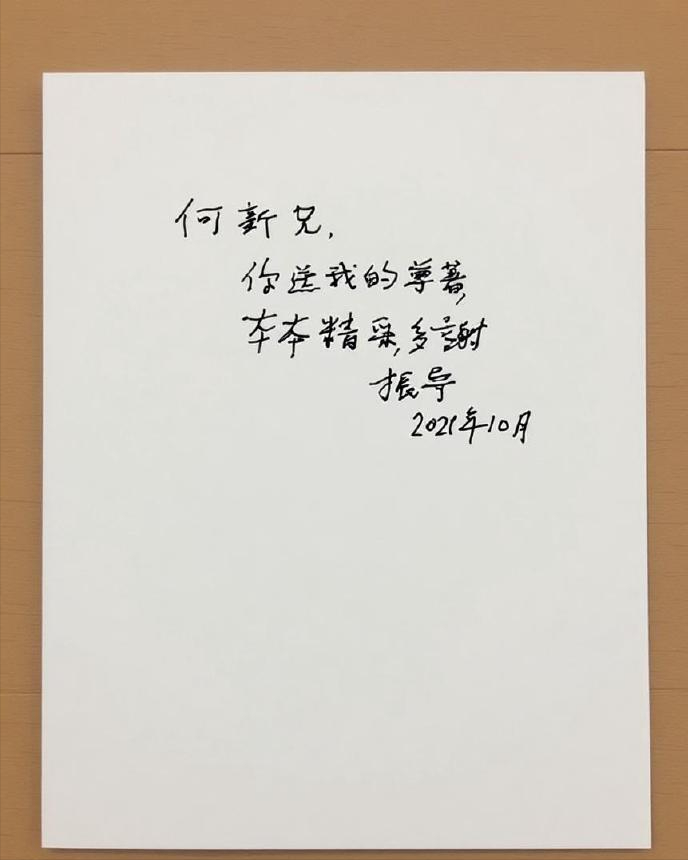 何新兄,
你送我的尊著,
本本精采,多謝
振导
2021年10月